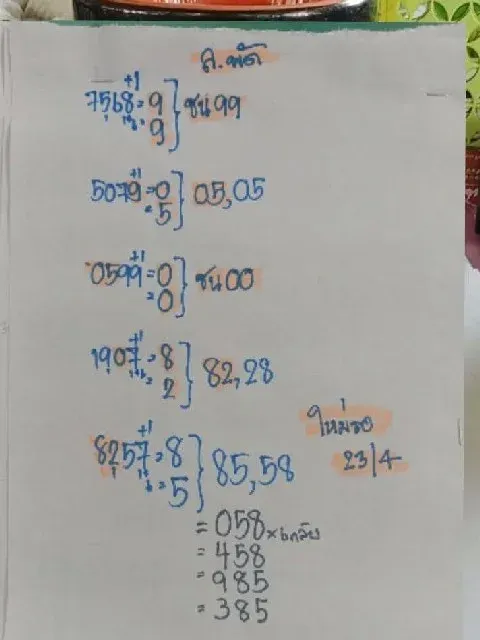 ล.พัด
+1
7568=9
9 } ชน 99
+1
5079=0
=5 } 05,05
+1
0599=0
=0 } ชน 00
+1
1907=8
=2 } 82,28
+1
8257=8
=5 } 85,58
ใหม่รอ
23/4
=058 x 6กลับ
=458
=985
=385